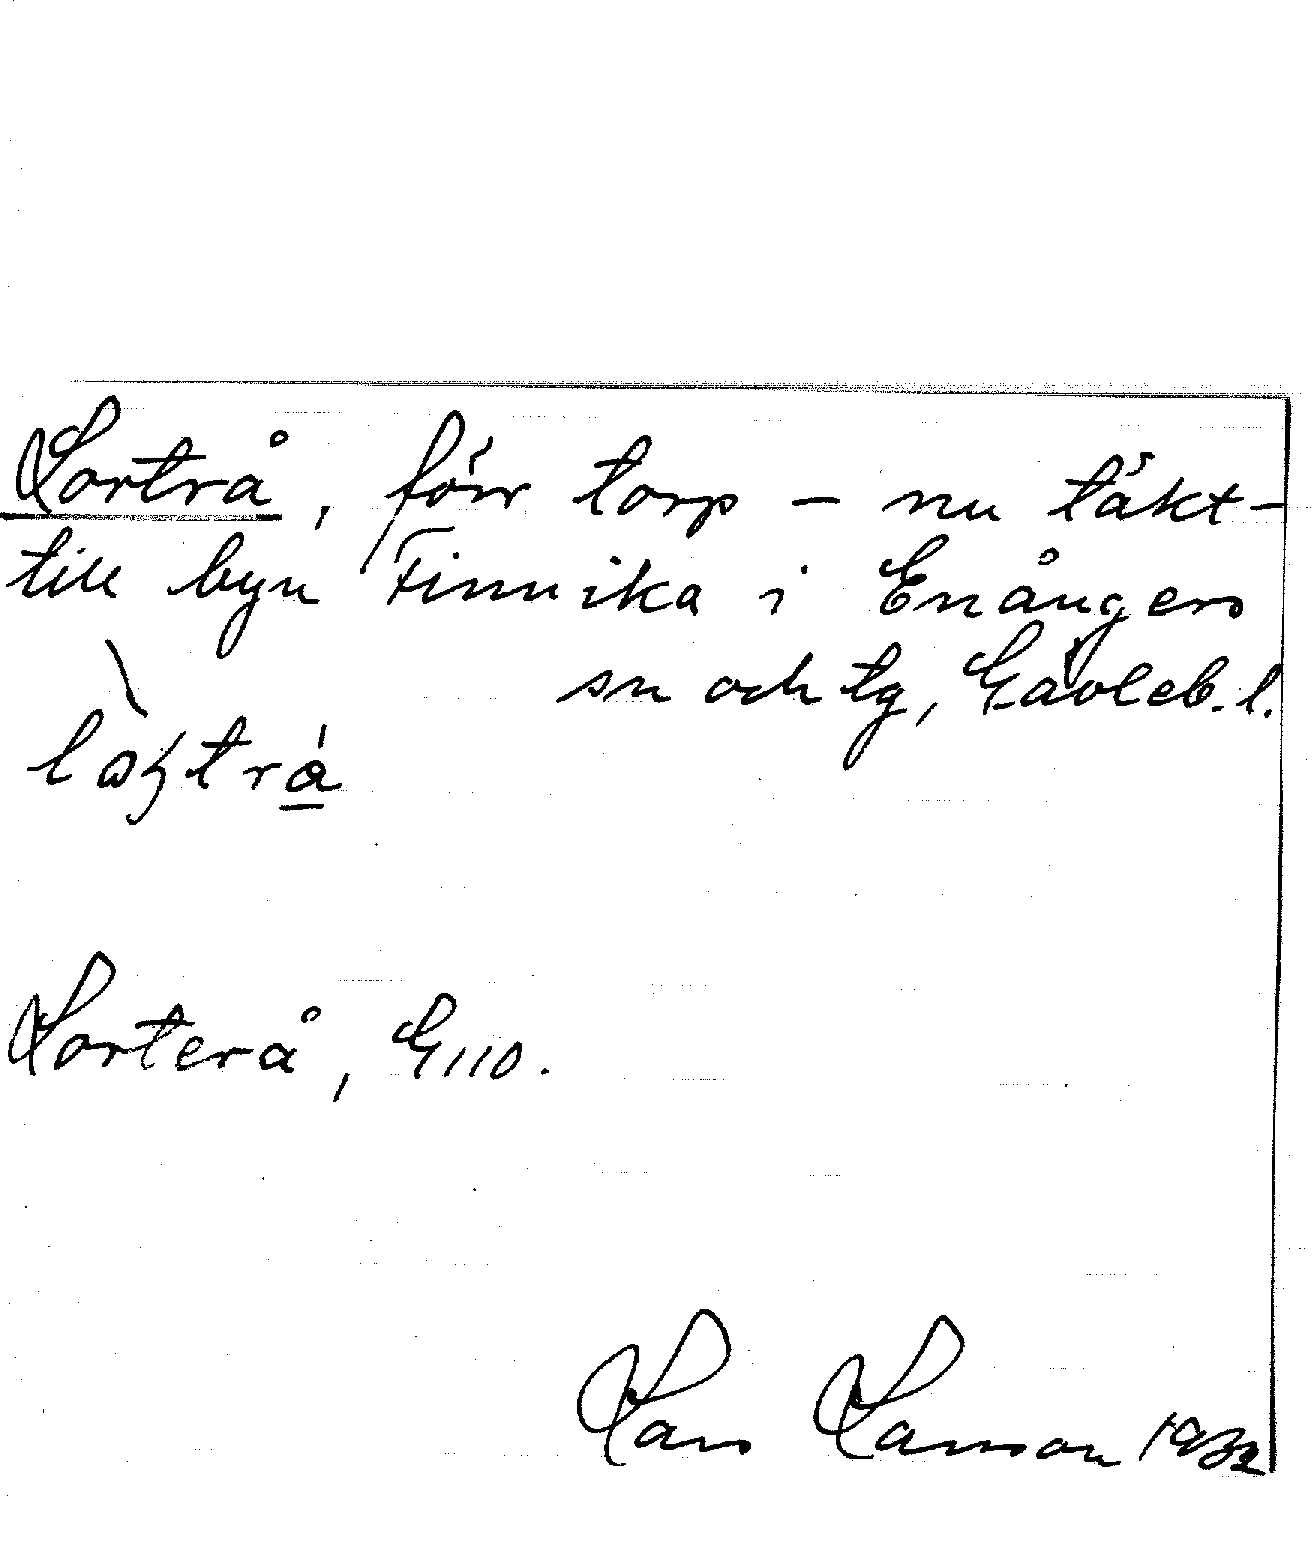 Lortrå, förr torp – nu täkt –
till byn Finnika i Enångers
sn och tg, Gävleb. l.
Lorterå, G110.
Lars Larsson 1932